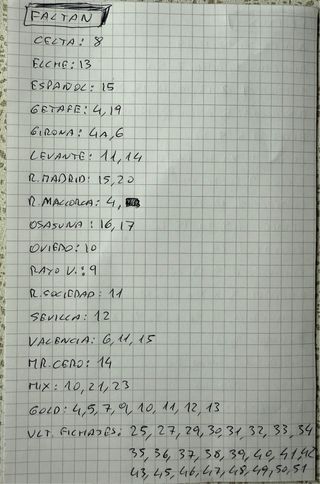 FALTAN
CELTA: 8
ELCHE: 13
ESPAÑOL: 15
GETAFE: 4, 19
GIRONA: 4A, 6
LEVANTE: 11, 14
R. MADRID: 15, 20
R. MALLORCA: 4,
OSASUNA: 16, 17
OVIEDO: 10
RAYO V.: 9
R. SOCIEDAD: 11
SEVILLA: 12
VALENCIA: 6, 11, 15
MR. CERO: 14
MIX: 10, 21, 23
GOLD: 4, 5, 7, 9, 10, 11, 12, 13
ULT. FICHAJES: 25, 27, 29, 30, 31, 32, 33, 34
35, 36, 37, 38, 39, 40, 41, 42
43, 45, 46, 47, 48, 49, 50, 51